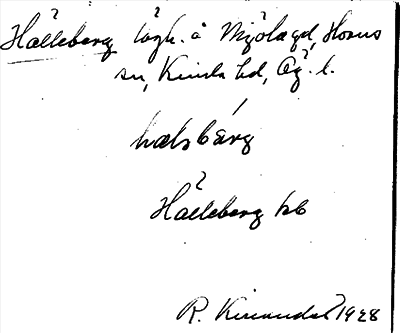 Hälleberg lägh. å Mjölsegd, Horns
sn, Kinda hd, Ög. l.
hælsbærg
Hälleberg kb
R. Kinander 1928